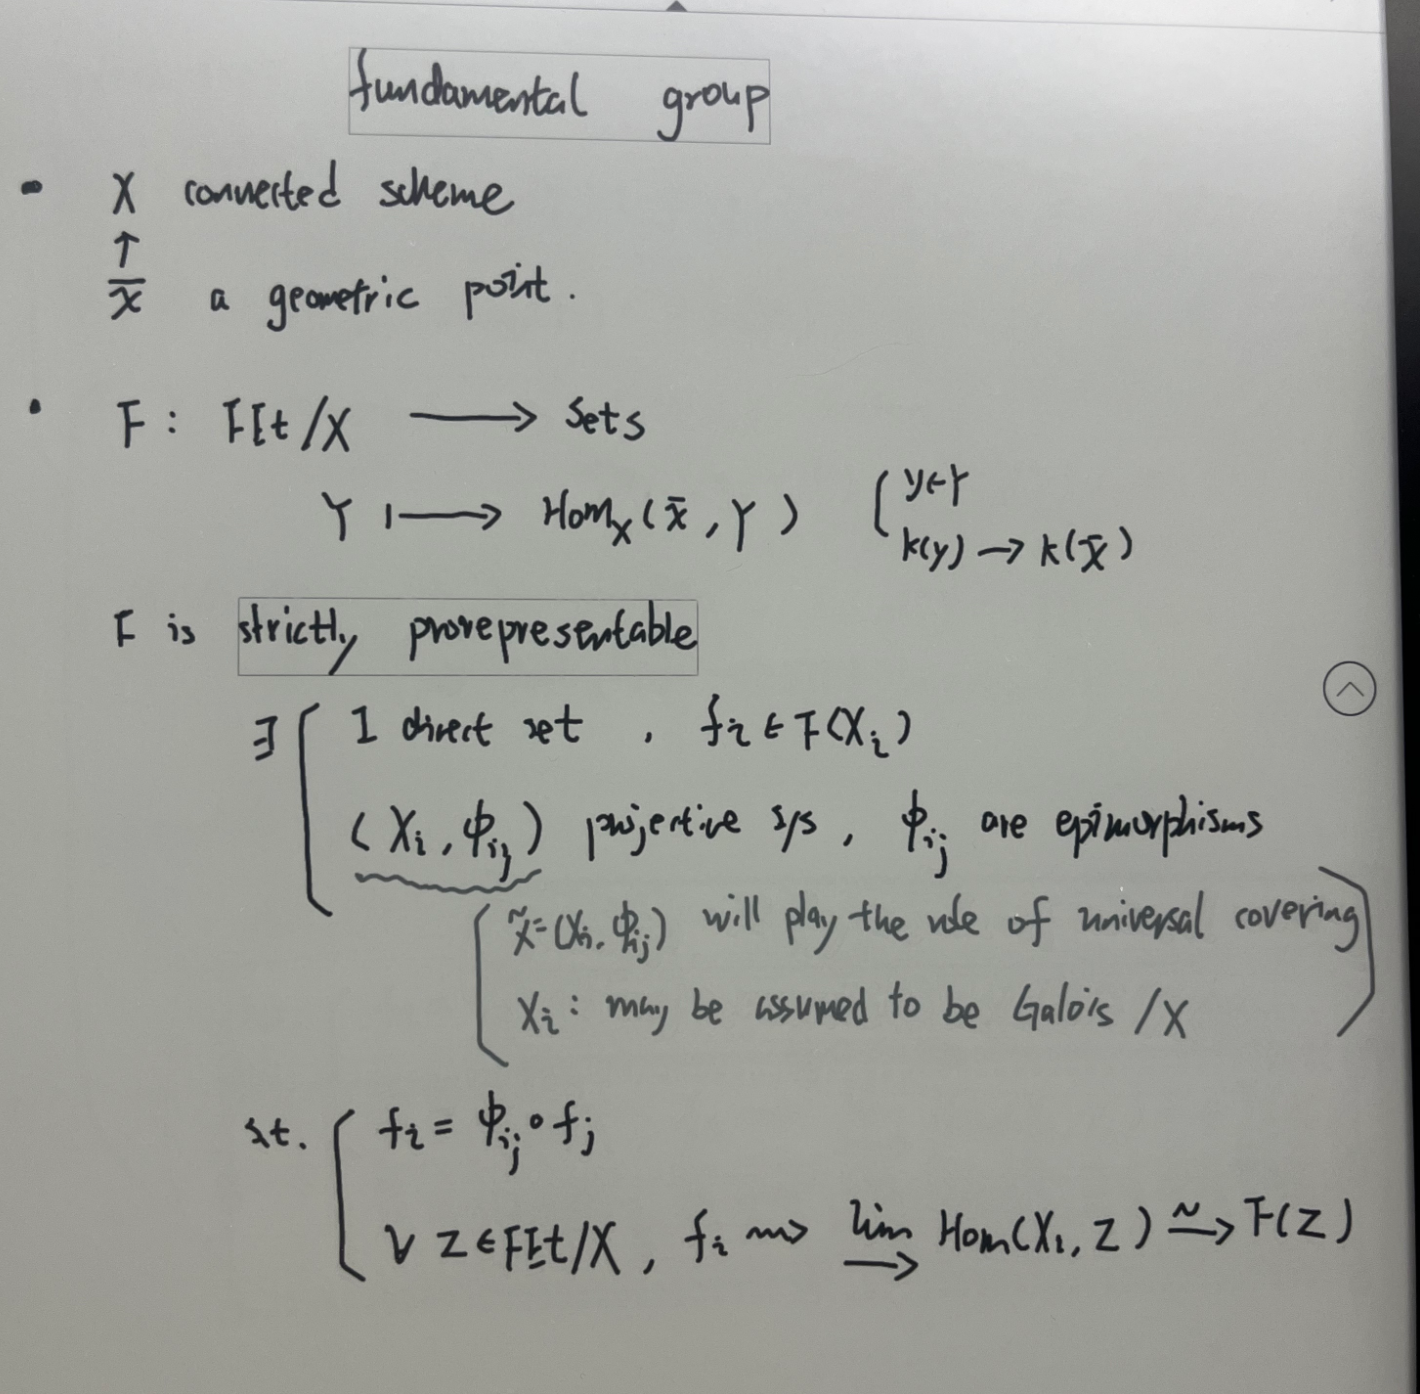 fundamental group
• X connected scheme
↑
x̄ a geometric point.
• F: FEt/X ⟶ Sets
Y ⟼ Hom_X(x̄, Y) ( y∈Y
k(y) → k(x̄)
F is strictly prorepresentable
∃ { I direct set, f_i ∈ F(X_i)
(X_i, ϕ_ij) projective sys, ϕ_ij are epimorphisms
( X̃=(X_i, ϕ_ij) will play the role of universal covering
X_i: may be assumed to be Galois /X )
s.t. { f_i = ϕ_ij ∘ f_j
∀ Z∈FEt/X, f_i ⇝ lim⟶ Hom(X_i, Z) ⥲ F(Z)